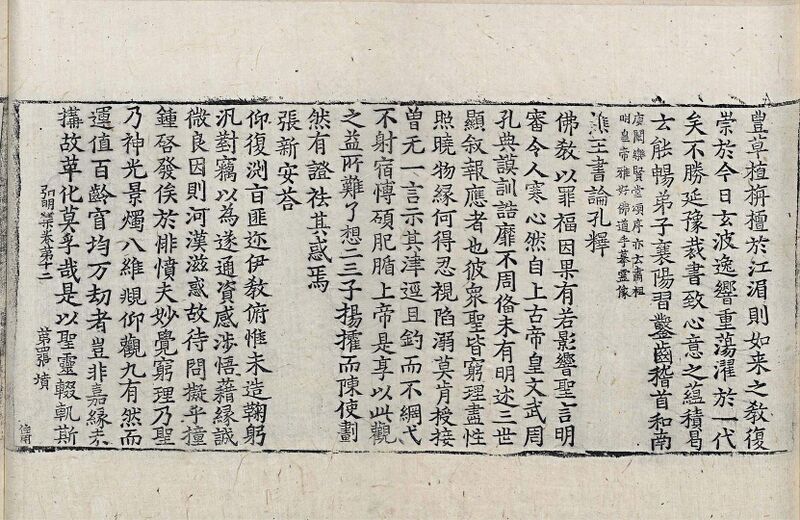 豐草植栴檀於江湄則如来之教復
崇於今日玄波逸響重蕩濯於一代
矣不勝延豫裁書致心意之蘊積曷
云能暢弟子襄陽習鑿齒稽首和南
庾闡樂賢堂頌序亦云肅祖
明皇帝雅好佛道手摹靈像
譙王書論孔釋
佛教以罪福因果有若影響聖言明
審令人寒心然自上古帝皇文武周
孔典謨訓誥靡不周俻未有明述三世
顯叙報應者也彼衆聖皆窮理盡性
照曉物緣何得忍視陷溺莫肯授接
曾无一言示其津逕且釣而不綱弋
不射宿慱碩肥腯上帝是享以此觀
之益所難了想二三子揚搉而陳使劃
然有證祛其惑焉
張新安荅
仰復測旨匪迩伊教俯惟未造鞠躬
汎對竊以為遂通資感渉悟藉緣誠
微良因則河漢滋惑故待問擬乎撞
鍾啓發俟於悱憤夫妙覺窮理乃聖
乃神光景燭八維覜仰觀九有然而
運值百齡窅均万劫者豈非嘉緣未
搆故革化莫孚哉是以聖靈輟軌斯
弘明集卷第十二 第四張 墳